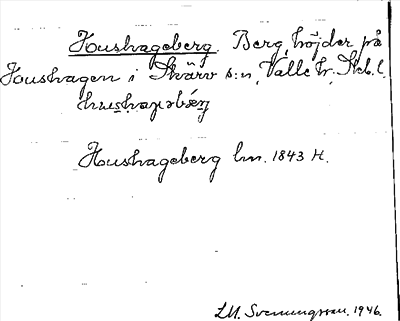 Hushageberg. Berg, höjder på
Hushagen i Skärv s:n, Valle hr, Skb. l.
Hushageberg lm. 1843 H.
I. M. Svenungsson. 1946.